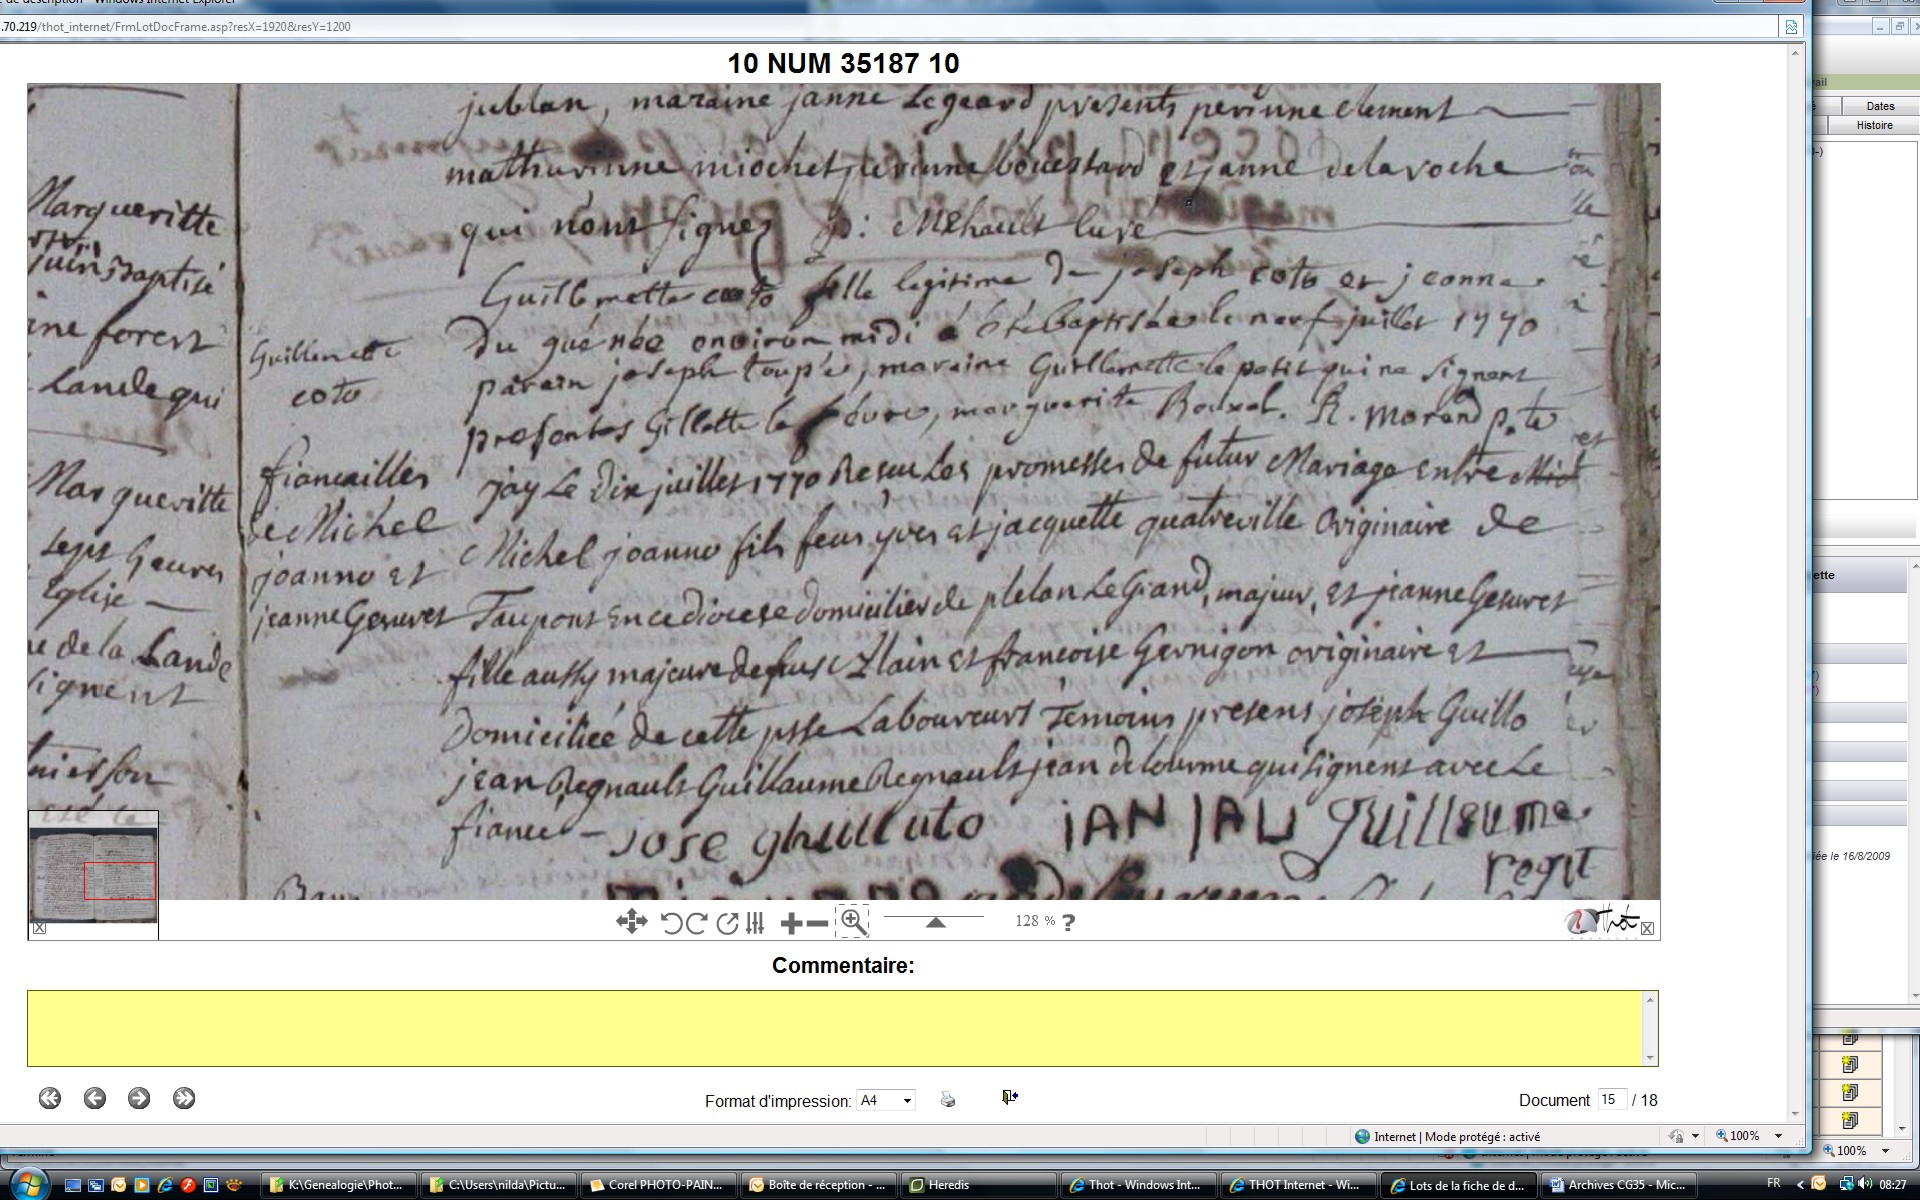 de description - Windows Internet Explorer
.70.219/thot_internet/FrmLotDocFrame.asp?resX=1920&resY=1200
10 NUM 35187 10
jublan, maraine janne Legeard presents perinne clement
mathurinne miochet perinne bouestard et janne delaroche
qui nont signes p: Mehault Curé
Guillemette coto fille legitime de joseph coto et jeanne
du guénée environ midi a été baptisée le neuf juillet 1770
parain joseph Toupé, maraine Guillemette le petit qui ne signent
presentes Gillette le févre, marguerite Rouxel. R. Morand p.tre
Guillemette
coto
jay Le Dix juillet 1770 Reçeu Les promesses de futur Mariage entre
Michel joanno fils feus yves et jacquette quatreville Originaire de
Taupont en ce diocese domicilier de plelan Le Grand, majeur, et jeanne Geuvret
fille aussy majeure de feus Alain et françoise Gernigon originaire et
Domiciliée de cette psse Laboureurs Temoins presens joseph Guillo
jean Regnault Guillaume Regnault jean delourme qui signent avec Le
fiancé - JOSE ghuilluto IAN JAU guilleume
regnt
fiancailles
de Michel
joanno et
jeanne Geuvret
Margueritte
juin Baptisé
ine forest
Lande qui
Margueritte
Geuvret
Eglise
e de la Lande
signent
128 % ?
Thot
Commentaire:
Format d'impression: A4
Document 15 / 18
Internet | Mode protégé : activé
100%
ail
Dates
Histoire
ette
ée le 16/8/2009
100%
K:\Genealogie\Phot...
C:\Users\nilda\Pictu...
Corel PHOTO-PAIN...
Boîte de réception - ...
Heredis
Thot - Windows Int...
THOT Internet - Wi...
Lots de la fiche de d...
Archives CG35 - Mic...
FR
08:27